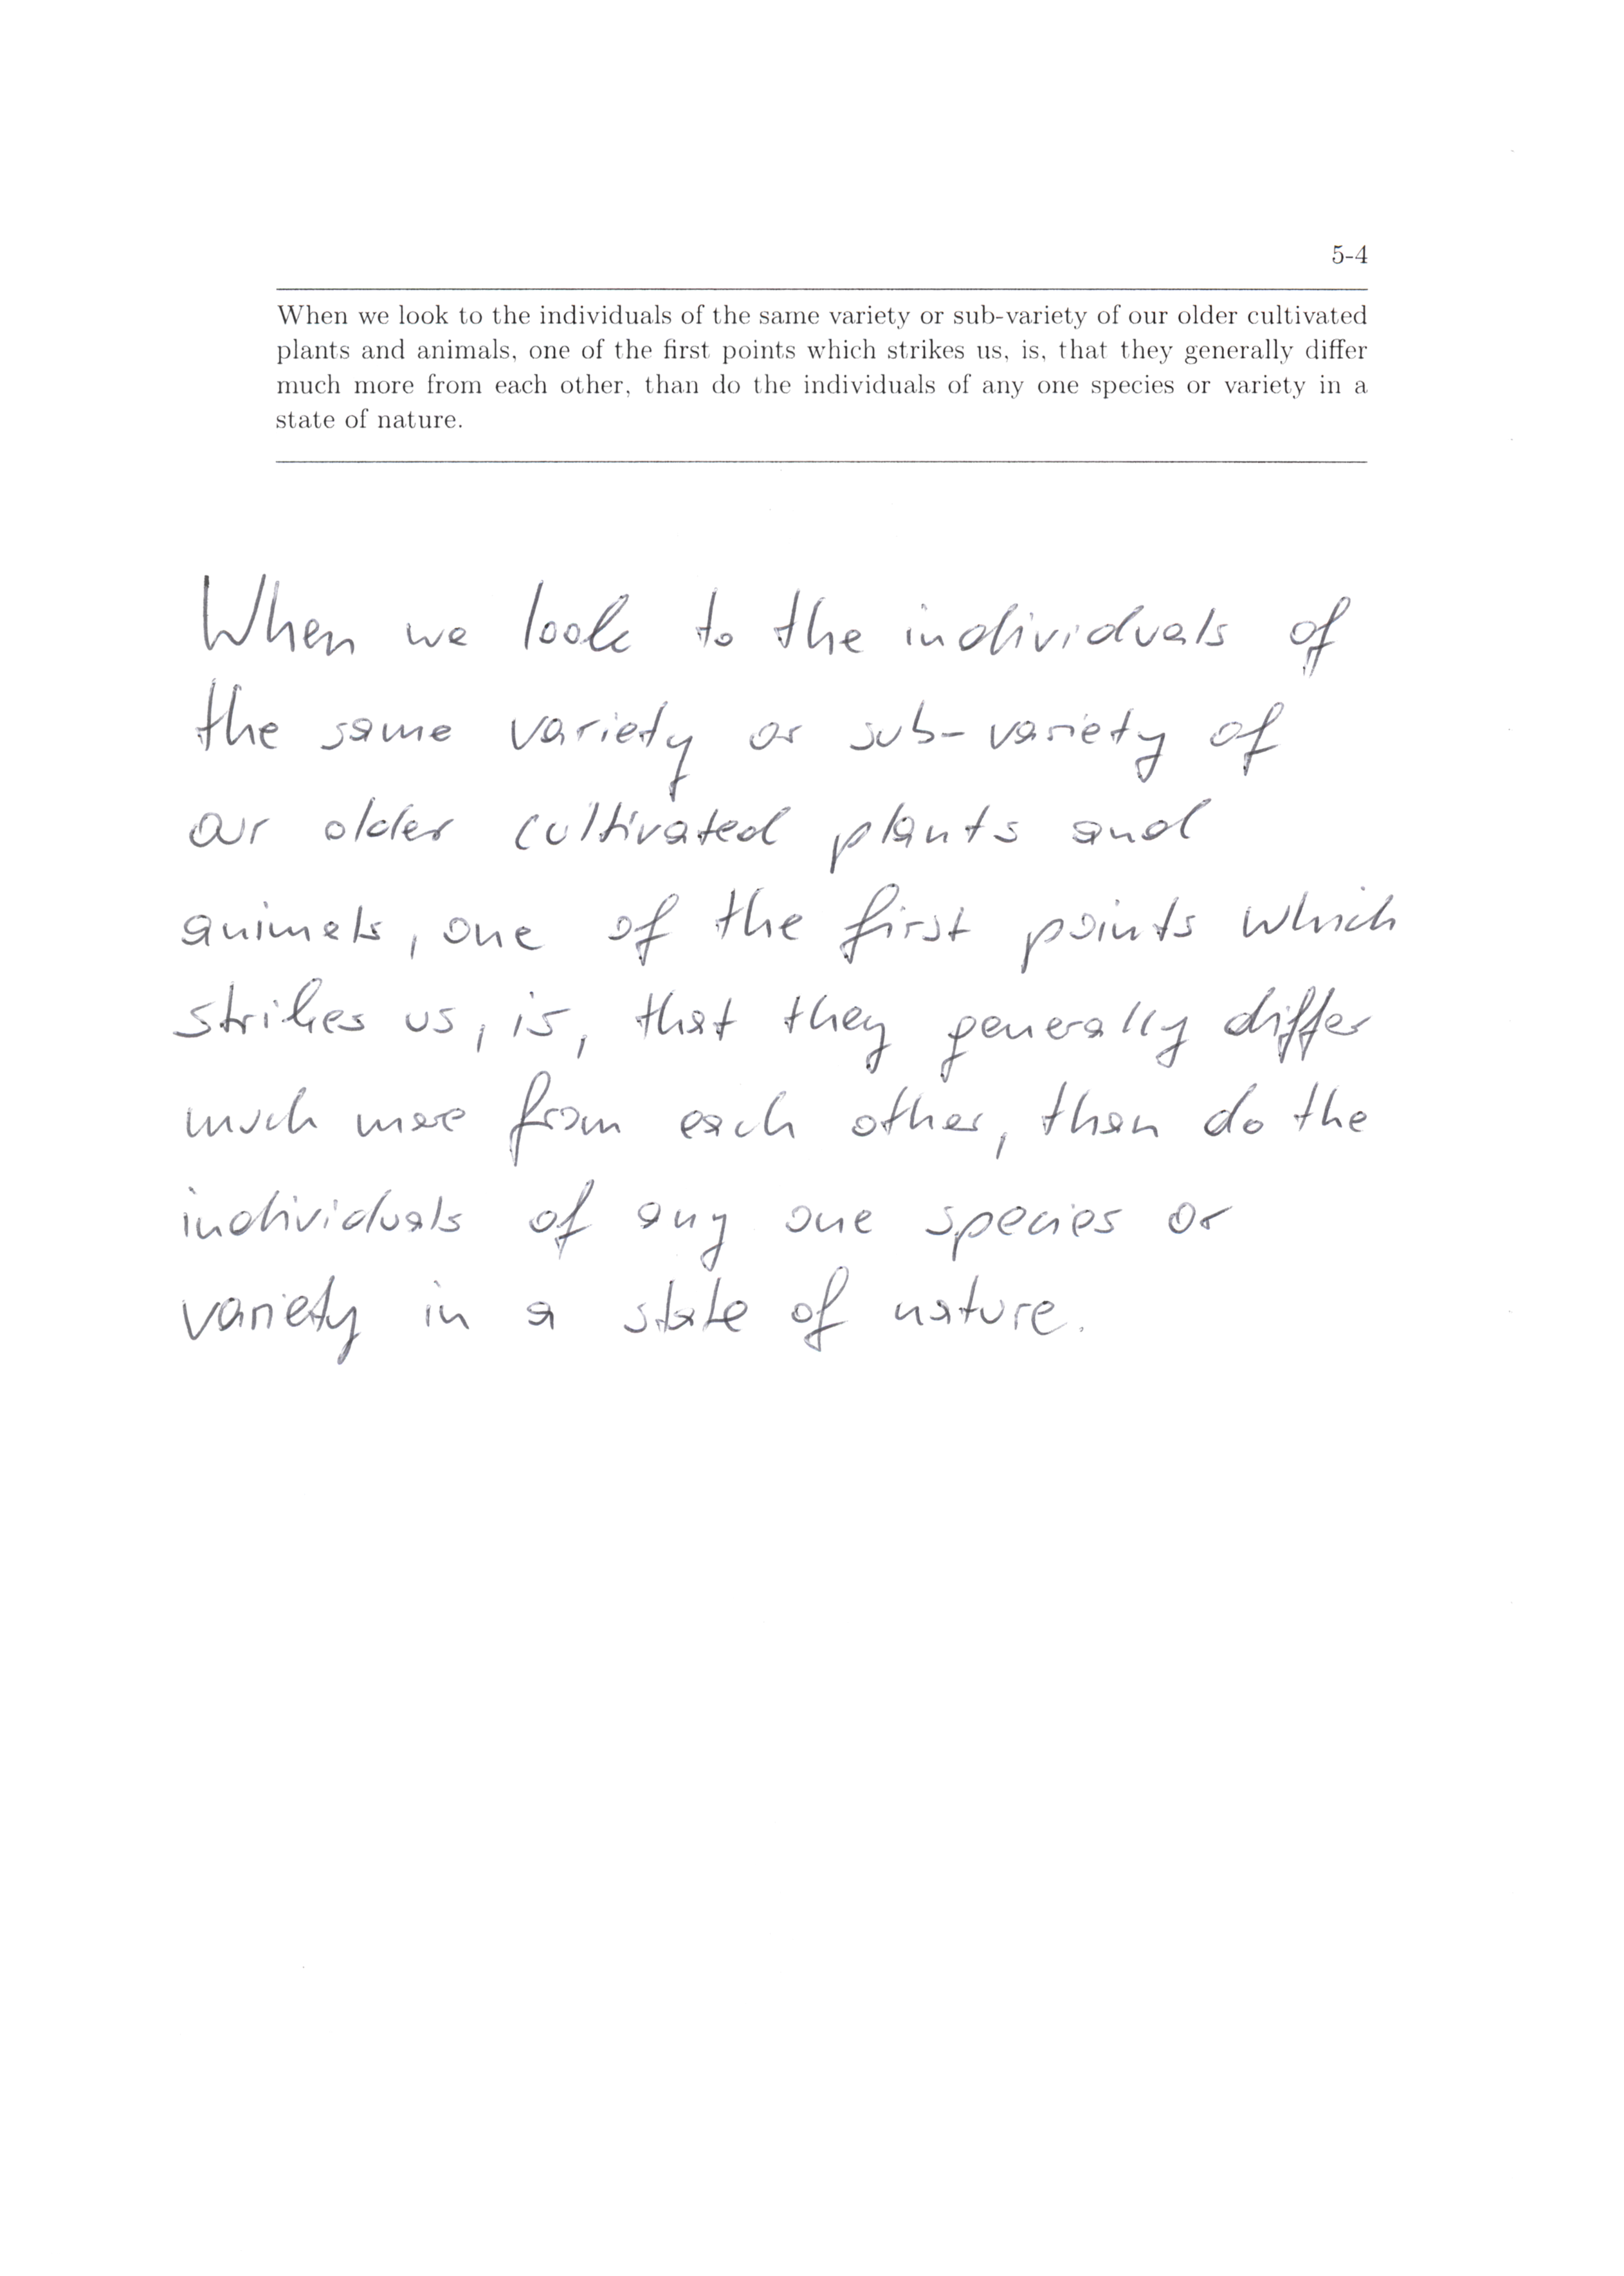 5-4
When we look to the individuals of the same variety or sub-variety of our older cultivated
plants and animals, one of the first points which strikes us, is, that they generally differ
much more from each other, than do the individuals of any one species or variety in a
state of nature.
When we look to the individuals of
the same variety or sub-variety of
our older cultivated plants and
animals, one of the first points which
strikes us, is, that they generally differ
much more from each other, than do the
individuals of any one species or
variety in a state of nature.